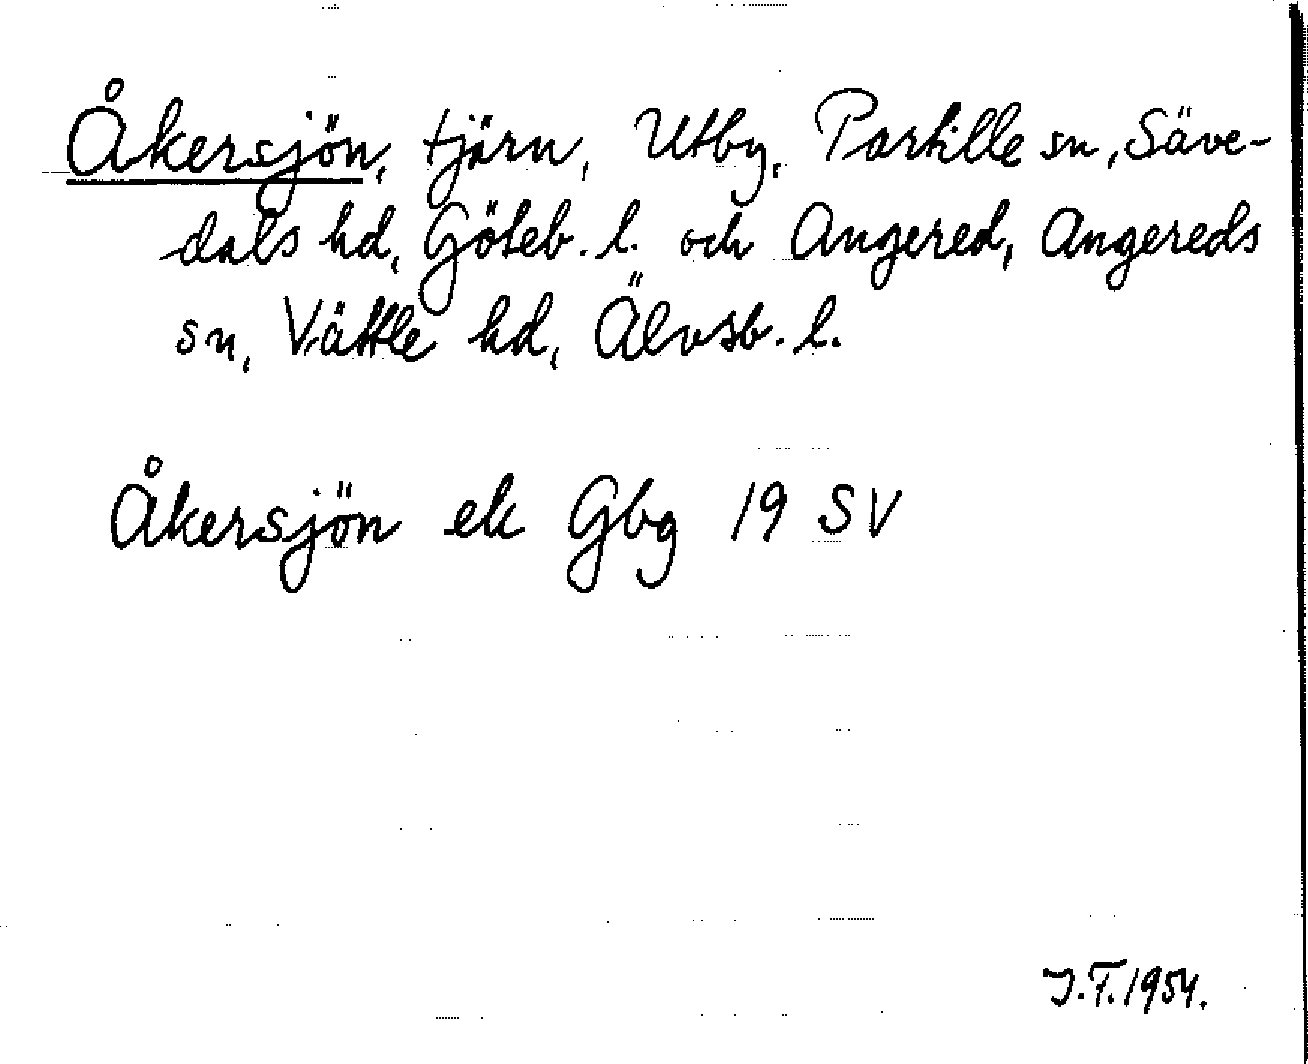 Åkersjön, tjärn, Utby, Partille sn, Säve-
dals hd, Göteb. l. och Angered, Angereds
sn, Vättle hd, Älvsb. l.
Åkersjön ek Gbg 19 SV
J.F. 1954.